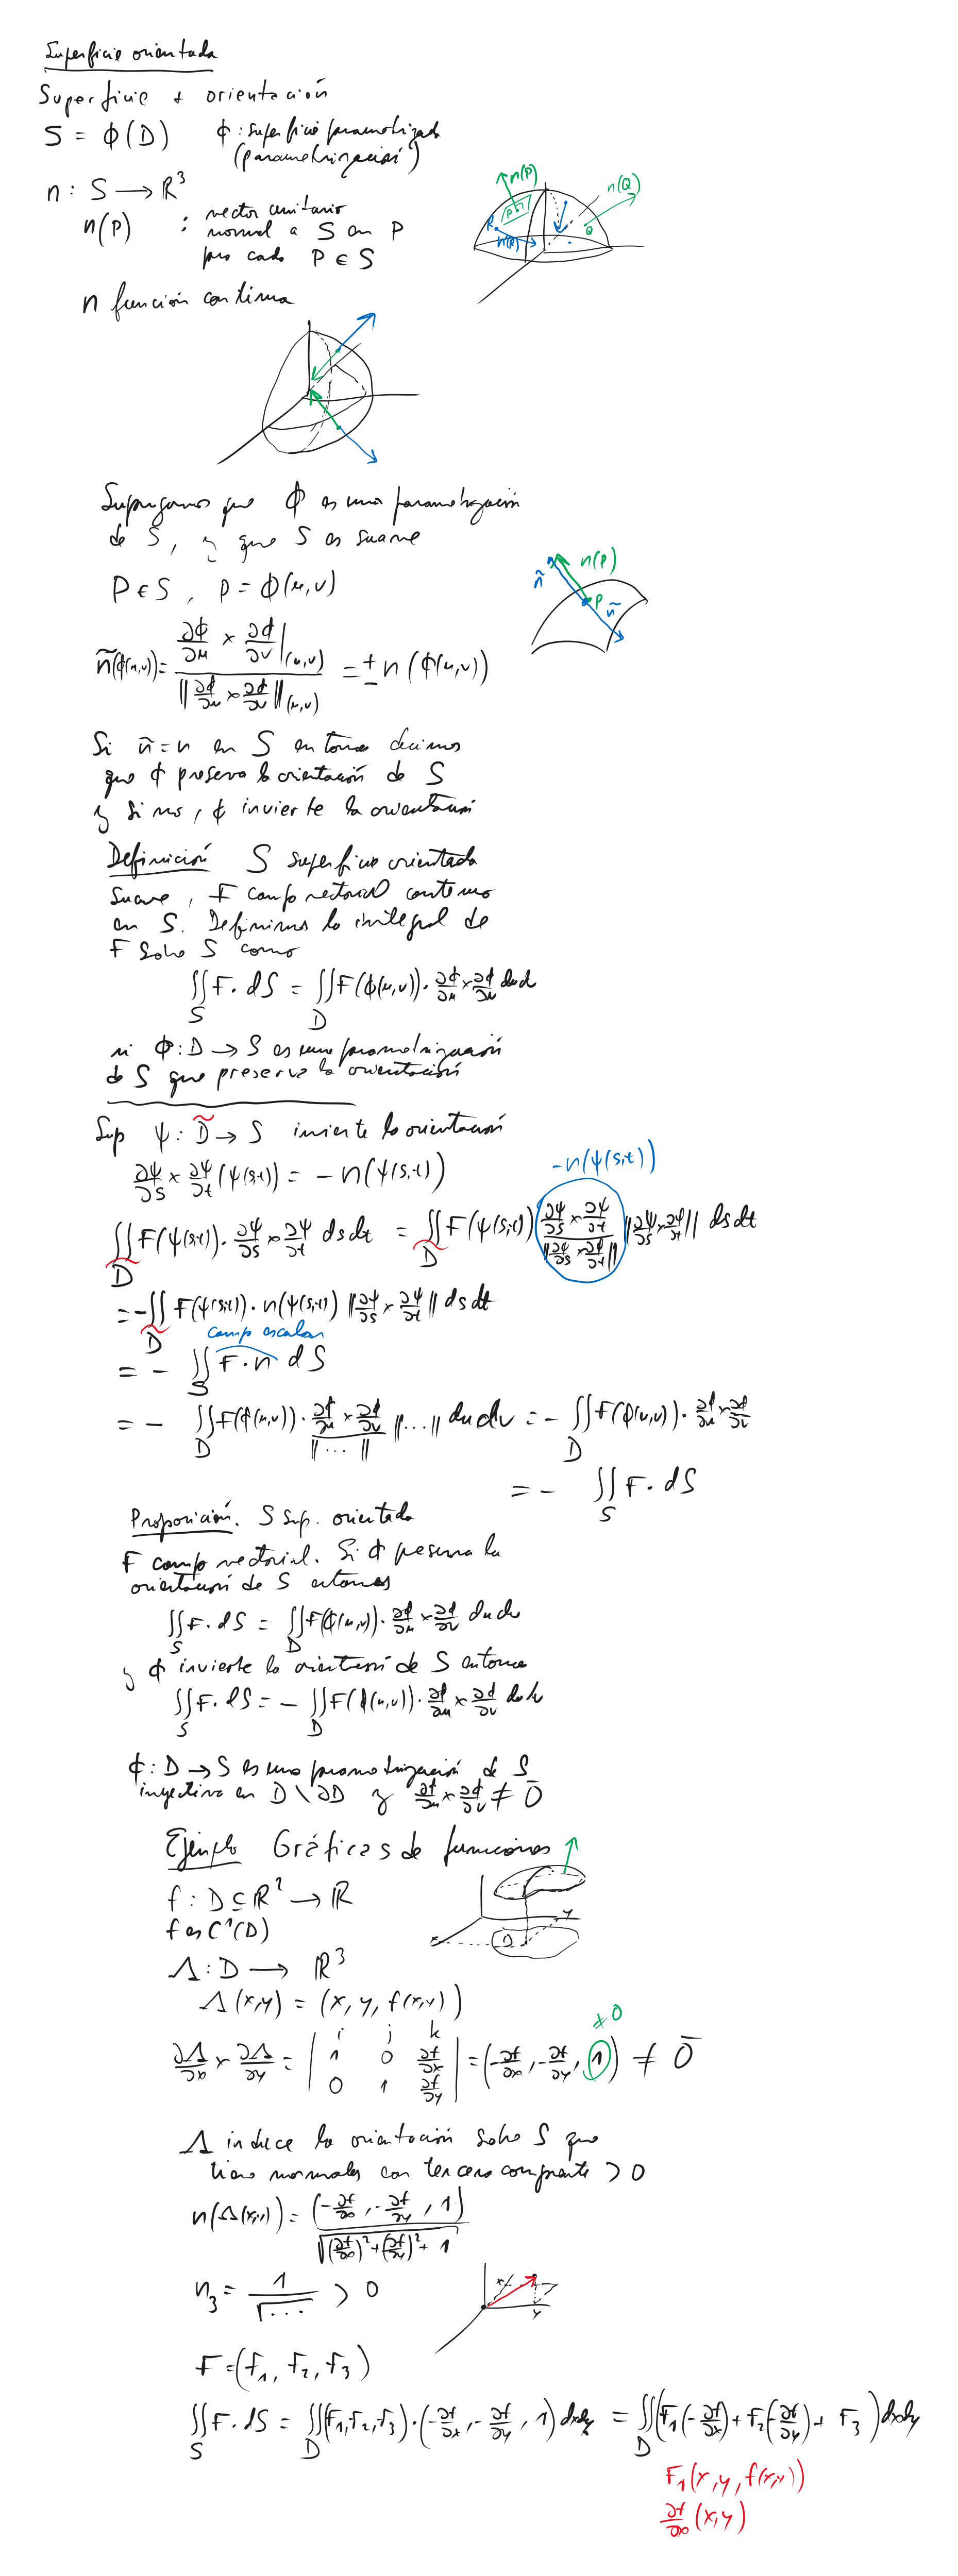 Superficie orientada
Superficie + orientación
S = ϕ(D)    ϕ : superficie parametrizada
(parametrización)
n : S ⟶ ℝ³
n(P) : vector unitario
normal a S en P
para cada P ∈ S
n(P)
P
n(Q)
Q
R
n(R)
n función continua
Supongamos que ϕ es una parametrización
de S, y que S es suave
P ∈ S , P = ϕ(u,v)
ñ
n(P)
P
ñ
ñ(ϕ(u,v)) = ∂ϕ/∂u × ∂ϕ/∂v |(u,v) / ‖∂ϕ/∂u × ∂ϕ/∂v‖(u,v) = ± n(ϕ(u,v))
Si ñ = n en S entonces decimos
que ϕ preserva la orientación de S
y si no, ϕ invierte la orientación
Definición S superficie orientada
suave, F campo vectorial continuo
en S. Definimos la integral de
F sobre S como
∬_S F · dS = ∬_D F(ϕ(u,v)) · ∂ϕ/∂u × ∂ϕ/∂u du d
si ϕ : D → S es una parametrización
de S que preserva la orientación
Sup ψ : D̃ → S invierte la orientación
∂ψ/∂s × ∂ψ/∂t (ψ(s,t)) = − n(ψ(s,t))
−n(ψ(s,t))
∬_D̃ F(ψ(s,t)) · ∂ψ/∂s × ∂ψ/∂t ds dt = ∬_D̃ F(ψ(s,t)) (∂ψ/∂s × ∂ψ/∂t / ‖∂ψ/∂s × ∂ψ/∂t‖) ‖∂ψ/∂s × ∂ψ/∂t‖ ds dt
= −∬_D̃ F(ψ(s,t)) · n(ψ(s,t)) ‖∂ψ/∂s × ∂ψ/∂t‖ ds dt
campo escalar
= − ∬_S F · n dS
= − ∬_D F(ϕ(u,v)) · ∂ϕ/∂u × ∂ϕ/∂v / ‖...‖ ‖....‖ du dv = − ∬_D F(ϕ(u,v)) · ∂ϕ/∂u × ∂ϕ/∂v
= − ∬_S F · dS
Proposición. S sup. orientada
F campo vectorial. Si ϕ preserva la
orientación de S entonces
∬_S F · dS = ∬_D F(ϕ(u,v)) · ∂ϕ/∂u × ∂ϕ/∂v du dv
y ϕ invierte la orientación de S entonces
∬_S F · dS = − ∬_D F(ϕ(u,v)) · ∂ϕ/∂u × ∂ϕ/∂v du dv
ϕ : D → S es una parametrización de S
inyectiva en D \ ∂D y ∂ϕ/∂u × ∂ϕ/∂v ≠ 0̄
Ejemplo Gráficas de funciones
f : D ⊆ ℝ² ⟶ ℝ
f es C¹(D)
x
y
D
Λ : D ⟶ ℝ³
Λ(x,y) = (x, y, f(x,y))
≠ 0
∂Λ/∂x × ∂Λ/∂y = | i j k
1 0 ∂f/∂x
0 1 ∂f/∂y | = (−∂f/∂x, −∂f/∂y, 1) ≠ 0̄
Λ induce la orientación sobre S que
tiene normales con tercera componente > 0
n(Λ(x,y)) = (−∂f/∂x, −∂f/∂y, 1) / √((∂f/∂x)² + (∂f/∂y)² + 1)
n₃ = 1/√... > 0
F = (F₁, F₂, F₃)
∬_S F · dS = ∬_D (F₁, F₂, F₃) · (−∂f/∂x, −∂f/∂y, 1) dxdy = ∬_D (F₁(−∂f/∂x) + F₂(−∂f/∂y) + F₃) dxdy
F₁(x, y, f(x,y))
∂f/∂x (x,y)